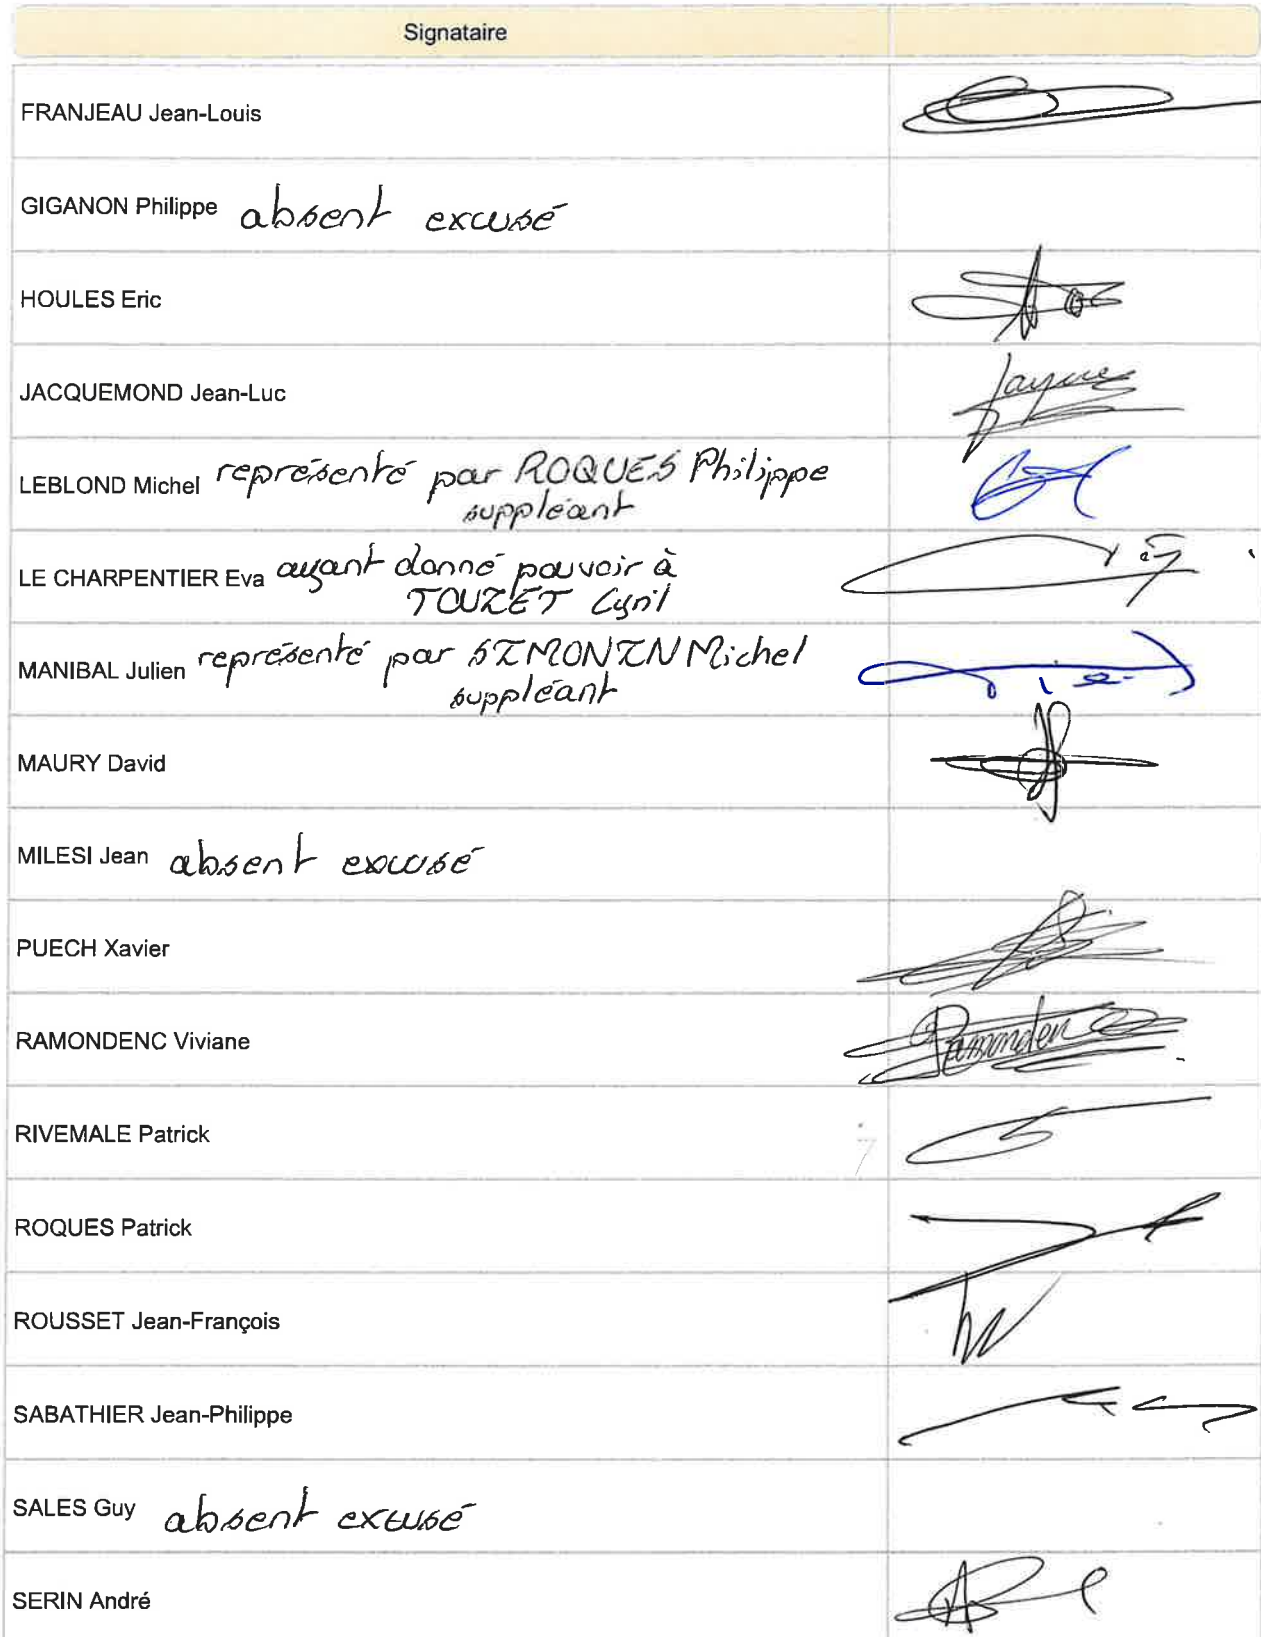 Signataire
FRANJEAU Jean-Louis
GIGANON Philippe absent excusé
HOULES Eric
JACQUEMOND Jean-Luc
LEBLOND Michel représenté par ROQUES Philippe
suppléant
LE CHARPENTIER Eva ayant donné pouvoir à
TOUZET Cyril
MANIBAL Julien représenté par SIMONIN Michel
suppléant
MAURY David
MILESI Jean absent excusé
PUECH Xavier
RAMONDENC Viviane
RIVEMALE Patrick
ROQUES Patrick
ROUSSET Jean-François
SABATHIER Jean-Philippe
SALES Guy absent excusé
SERIN André